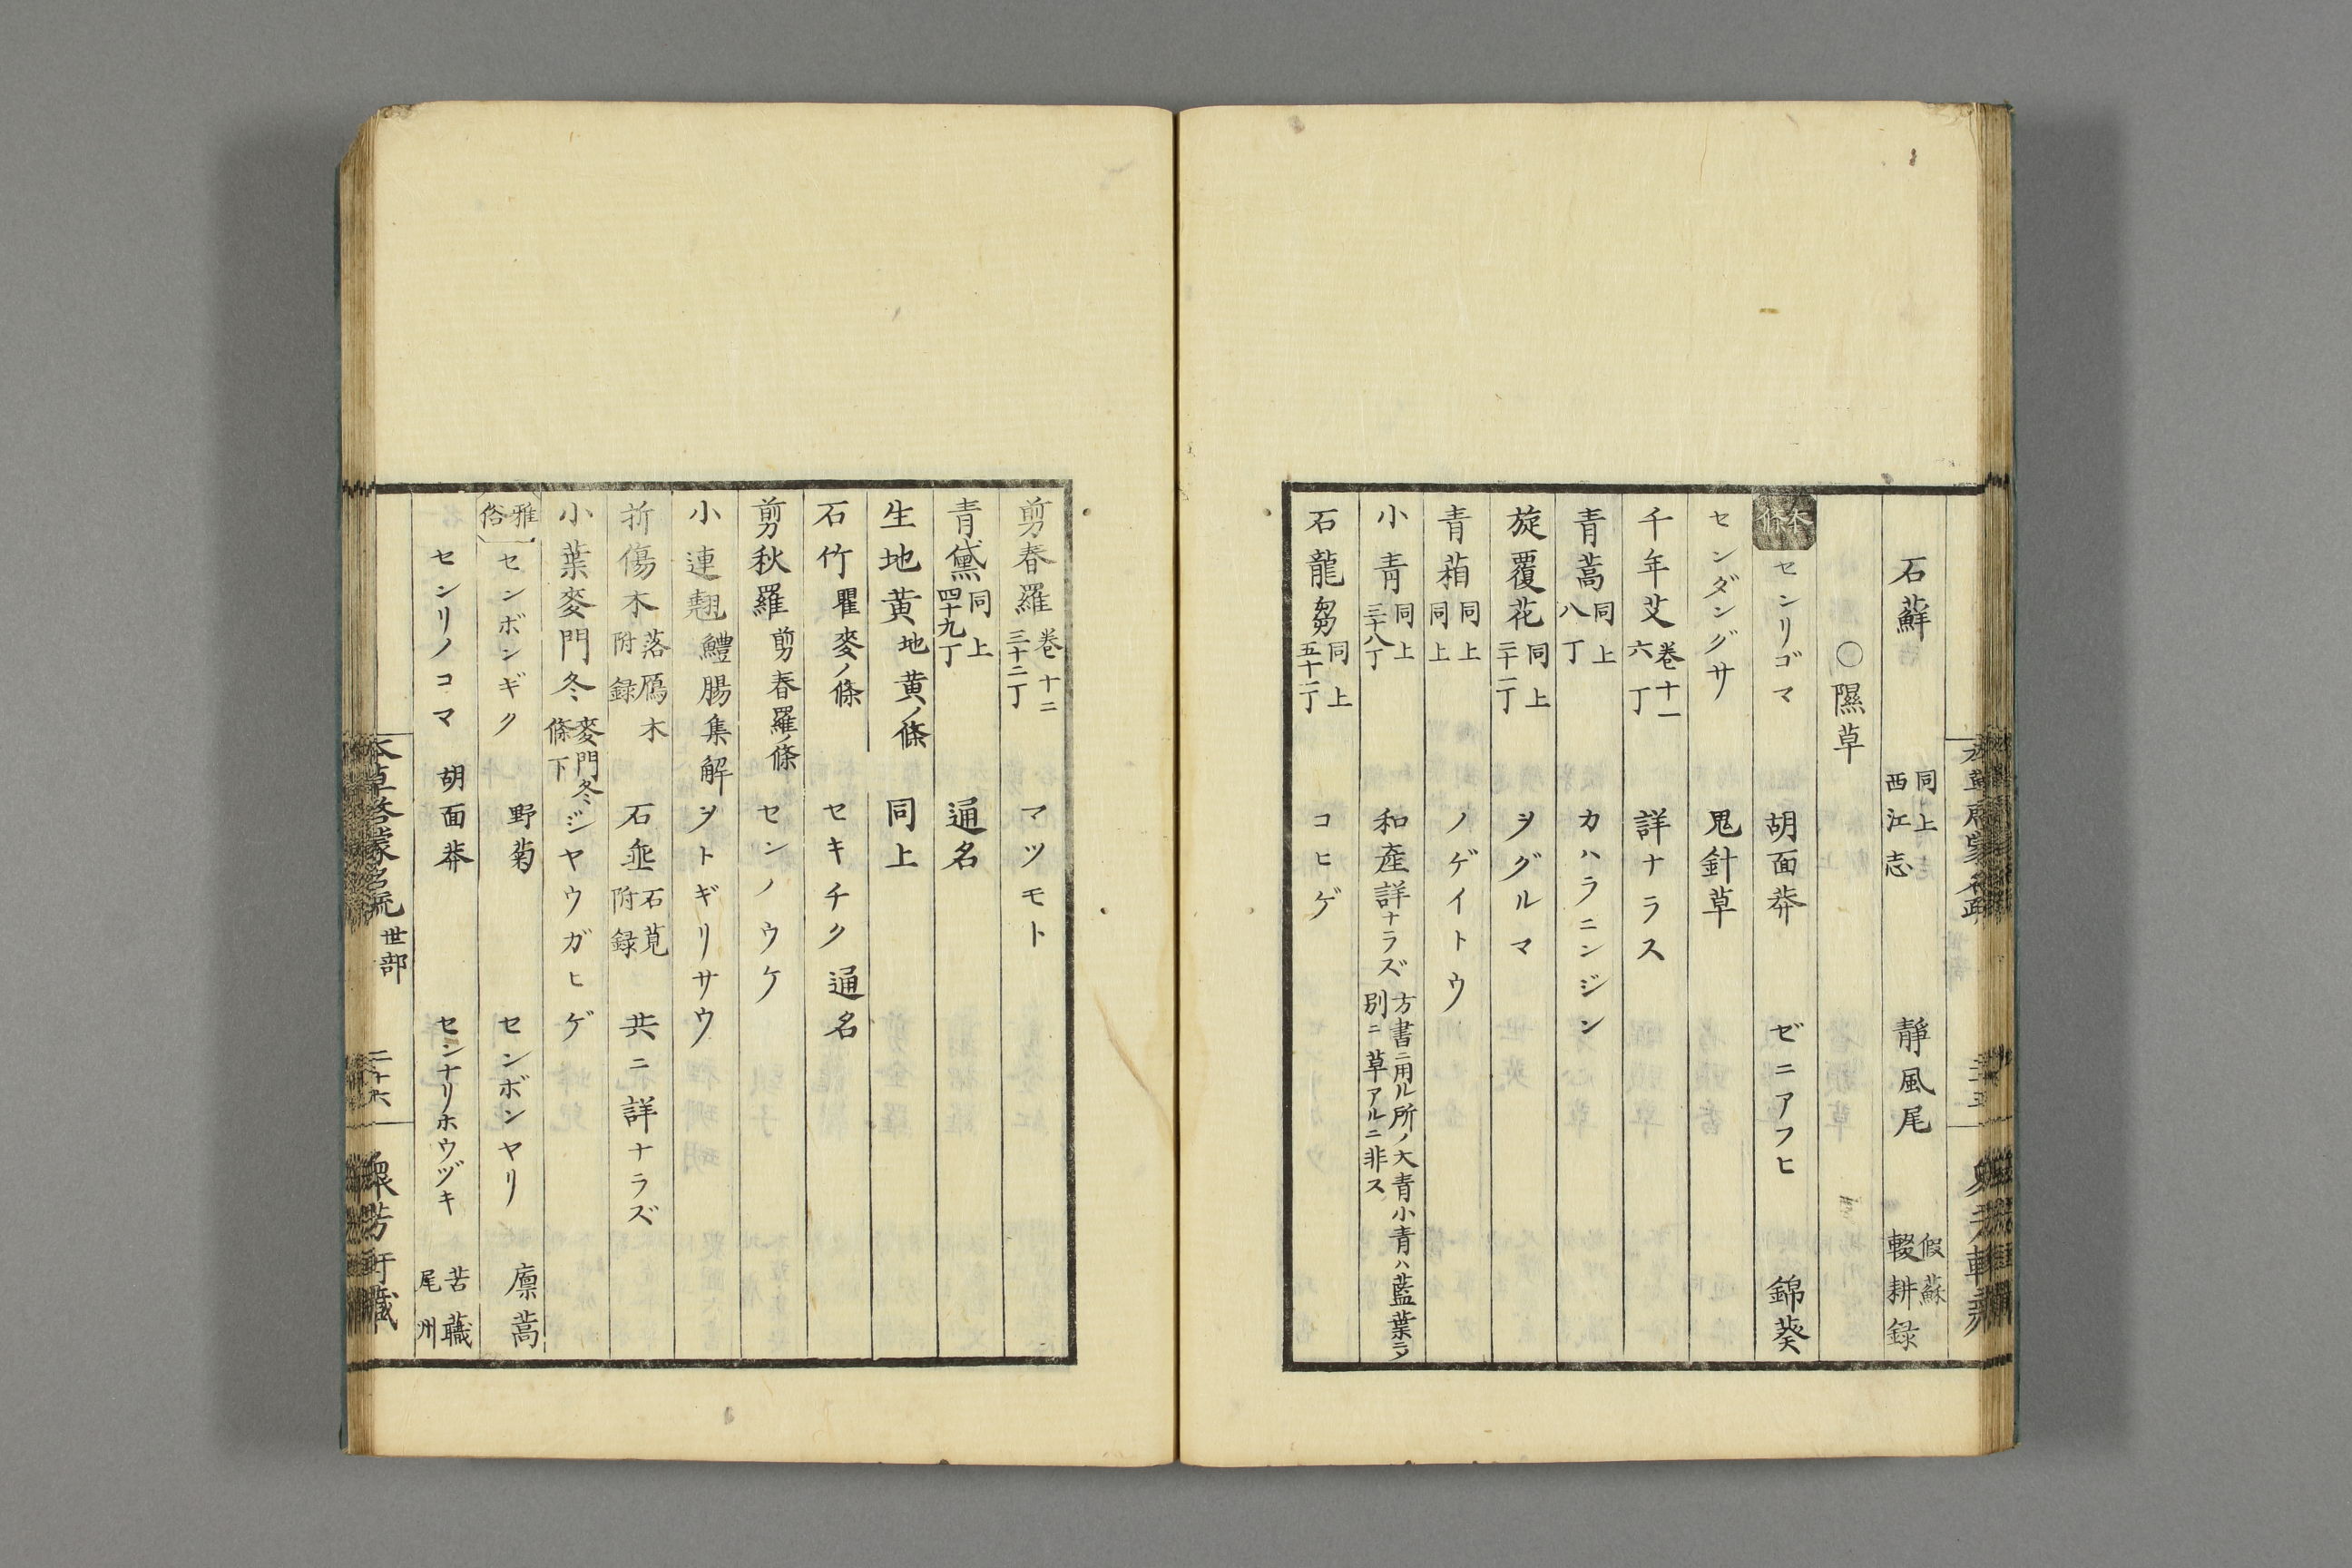 石蘚 同上 西江志 靜風尾 假蘇 輟耕録
○隰草
本條 センリゴマ 胡面莽 ゼニアフヒ 錦葵
センダングサ 鬼針草
千年艾 卷十一 六丁 詳ナラス
青蒿 同上 八丁 カハラニンジン
旋覆花 同上 三十二丁 ヲグルマ
青葙 同上 同上 ノゲイトウ
小青 同上 三十八丁 和産詳ナラズ 方書ニ用ル所ノ大青小青ハ藍葉ラ 別ニ草アルニ非ス
石龍芻 同上 五十二丁 コヒゲ
剪春羅 卷十二 三十二丁 マツモト
青黛 同上 四十九丁 通名
生地黄 地黄ノ條 同上
石竹 瞿麥ノ條 セキチク 通名
剪秋羅 剪春羅ノ條 センノウケ
小連翹 鱧腸集解 ヲトギリサウ
折傷木 落鴈木 附録 石垂 石莧 附録 共ニ詳ナラズ
小葉麥門冬 麥門冬 條下 ジヤウガヒゲ
雅俗 センボンギク 野菊 センボンヤリ 廩蒿
センリノコマ 胡面莽 センナリホウヅキ 苦蘵 尾州
本草啓蒙名疏 世部 二十六 衆芳軒藏